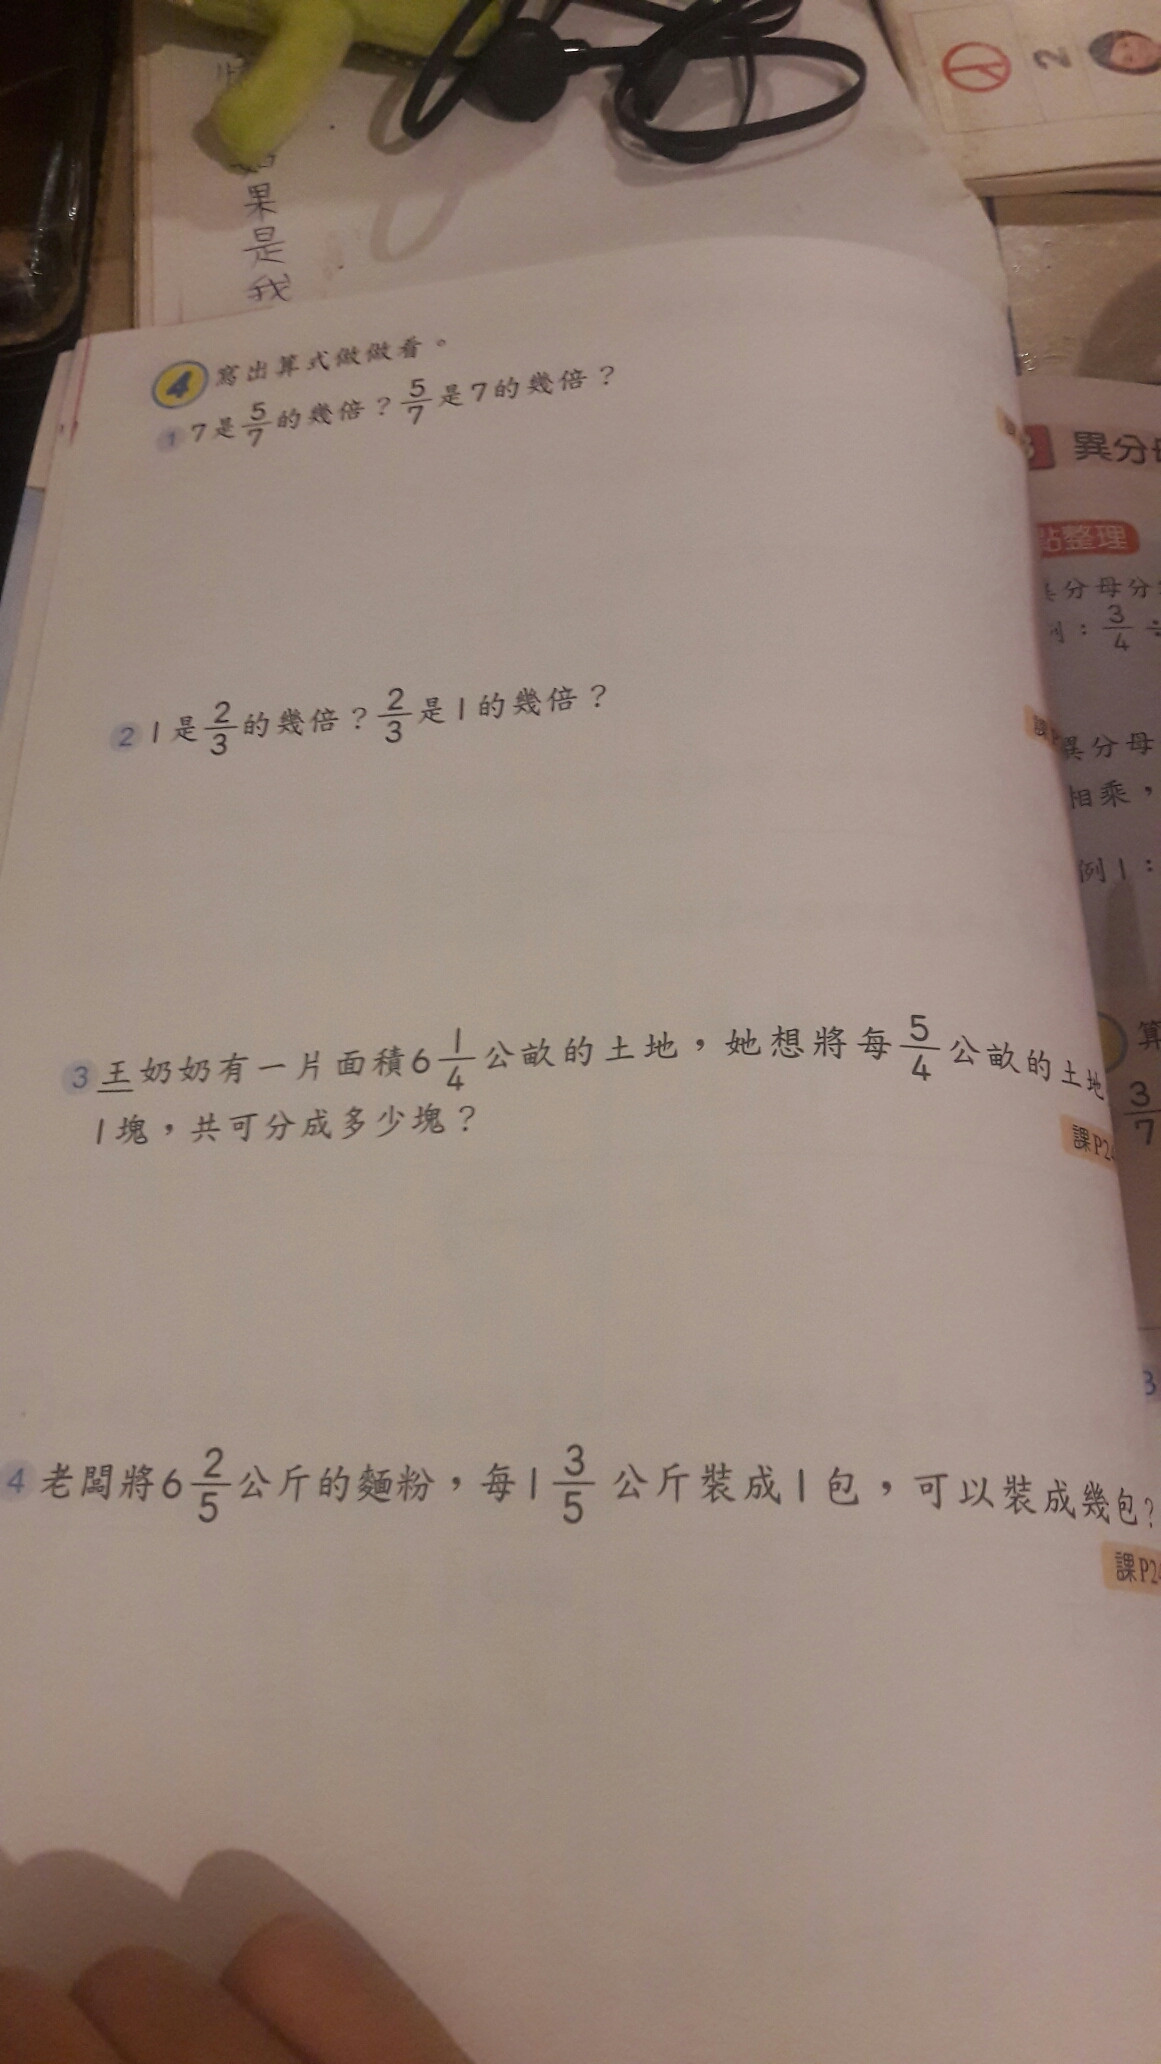 如果是我
2
4 寫出算式做做看。
1 7是5/7的幾倍？5/7是7的幾倍？
2 1是2/3的幾倍？2/3是1的幾倍？
3 王奶奶有一片面積6 1/4公畝的土地，她想將每5/4公畝的土地
1塊，共可分成多少塊？
課P2
4 老闆將6 2/5公斤的麵粉，每1 3/5公斤裝成1包，可以裝成幾包？
課P2
異分
點整理
分母分
：3/4÷
異分母
相乘，
例1：
算
3/7
3